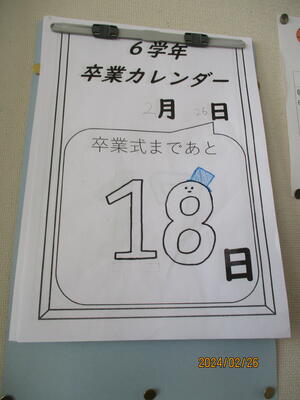 6学年
卒業カレンダー
2月 26日
卒業式まであと
18日
2024/02/26